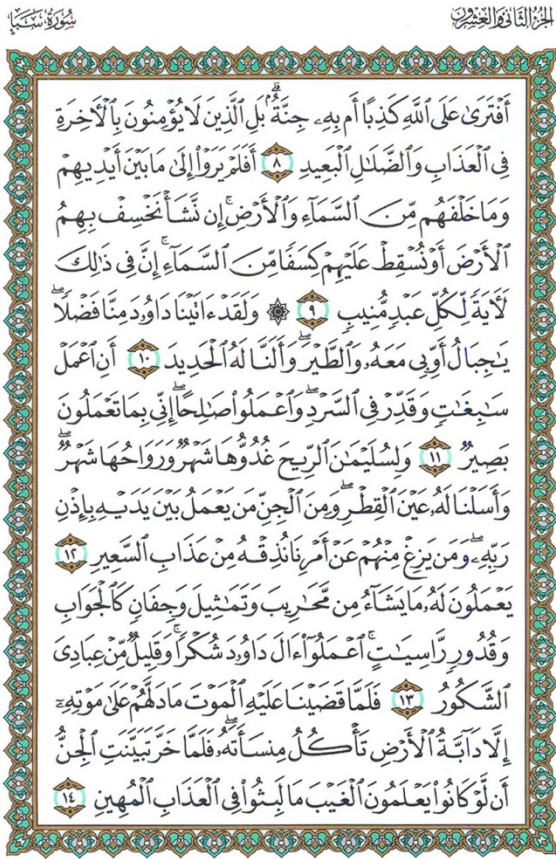 الجزء الثاني والعشرون
سورة سبإ
أَفْتَرَىٰ عَلَى ٱللَّهِ كَذِبًا أَم بِهِۦ جِنَّةٌۢ ۗ بَلِ ٱلَّذِينَ لَا يُؤْمِنُونَ بِٱلْأَخِرَةِ
فِى ٱلْعَذَابِ وَٱلضَّلَٰلِ ٱلْبَعِيدِ ٨ أَفَلَمْ يَرَوْا۟ إِلَىٰ مَا بَيْنَ أَيْدِيهِمْ
وَمَا خَلْفَهُم مِّنَ ٱلسَّمَآءِ وَٱلْأَرْضِ ۚ إِن نَّشَأْ نَخْسِفْ بِهِمُ
ٱلْأَرْضَ أَوْ نُسْقِطْ عَلَيْهِمْ كِسَفًا مِّنَ ٱلسَّمَآءِ ۚ إِنَّ فِى ذَٰلِكَ
لَأَيَةً لِّكُلِّ عَبْدٍ مُّنِيبٍ ٩ ۞ وَلَقَدْ ءَاتَيْنَا دَاوُۥدَ مِنَّا فَضْلًا ۖ
يَٰجِبَالُ أَوِّبِى مَعَهُۥ وَٱلطَّيْرَ ۖ وَأَلَنَّا لَهُ ٱلْحَدِيدَ ١٠ أَنِ ٱعْمَلْ
سَٰبِغَٰتٍ وَقَدِّرْ فِى ٱلسَّرْدِ ۖ وَٱعْمَلُوا۟ صَٰلِحًا ۖ إِنِّى بِمَا تَعْمَلُونَ
بَصِيرٌ ١١ وَلِسُلَيْمَٰنَ ٱلرِّيحَ غُدُوُّهَا شَهْرٌ وَرَوَاحُهَا شَهْرٌ ۖ
وَأَسَلْنَا لَهُۥ عَيْنَ ٱلْقِطْرِ ۖ وَمِنَ ٱلْجِنِّ مَن يَعْمَلُ بَيْنَ يَدَيْهِ بِإِذْنِ
رَبِّهِۦ ۖ وَمَن يَزِغْ مِنْهُمْ عَنْ أَمْرِنَا نُذِقْهُ مِنْ عَذَابِ ٱلسَّعِيرِ ١٢
يَعْمَلُونَ لَهُۥ مَا يَشَآءُ مِن مَّحَٰرِيبَ وَتَمَٰثِيلَ وَجِفَانٍ كَٱلْجَوَابِ
وَقُدُورٍ رَّاسِيَٰتٍ ۚ ٱعْمَلُوٓا۟ ءَالَ دَاوُۥدَ شُكْرًا ۚ وَقَلِيلٌ مِّنْ عِبَادِىَ
ٱلشَّكُورُ ١٣ فَلَمَّا قَضَيْنَا عَلَيْهِ ٱلْمَوْتَ مَا دَلَّهُمْ عَلَىٰ مَوْتِهِۦٓ
إِلَّا دَآبَّةُ ٱلْأَرْضِ تَأْكُلُ مِنسَأَتَهُۥ ۖ فَلَمَّا خَرَّ تَبَيَّنَتِ ٱلْجِنُّ
أَن لَّوْ كَانُوا۟ يَعْلَمُونَ ٱلْغَيْبَ مَا لَبِثُوا۟ فِى ٱلْعَذَابِ ٱلْمُهِينِ ١٤